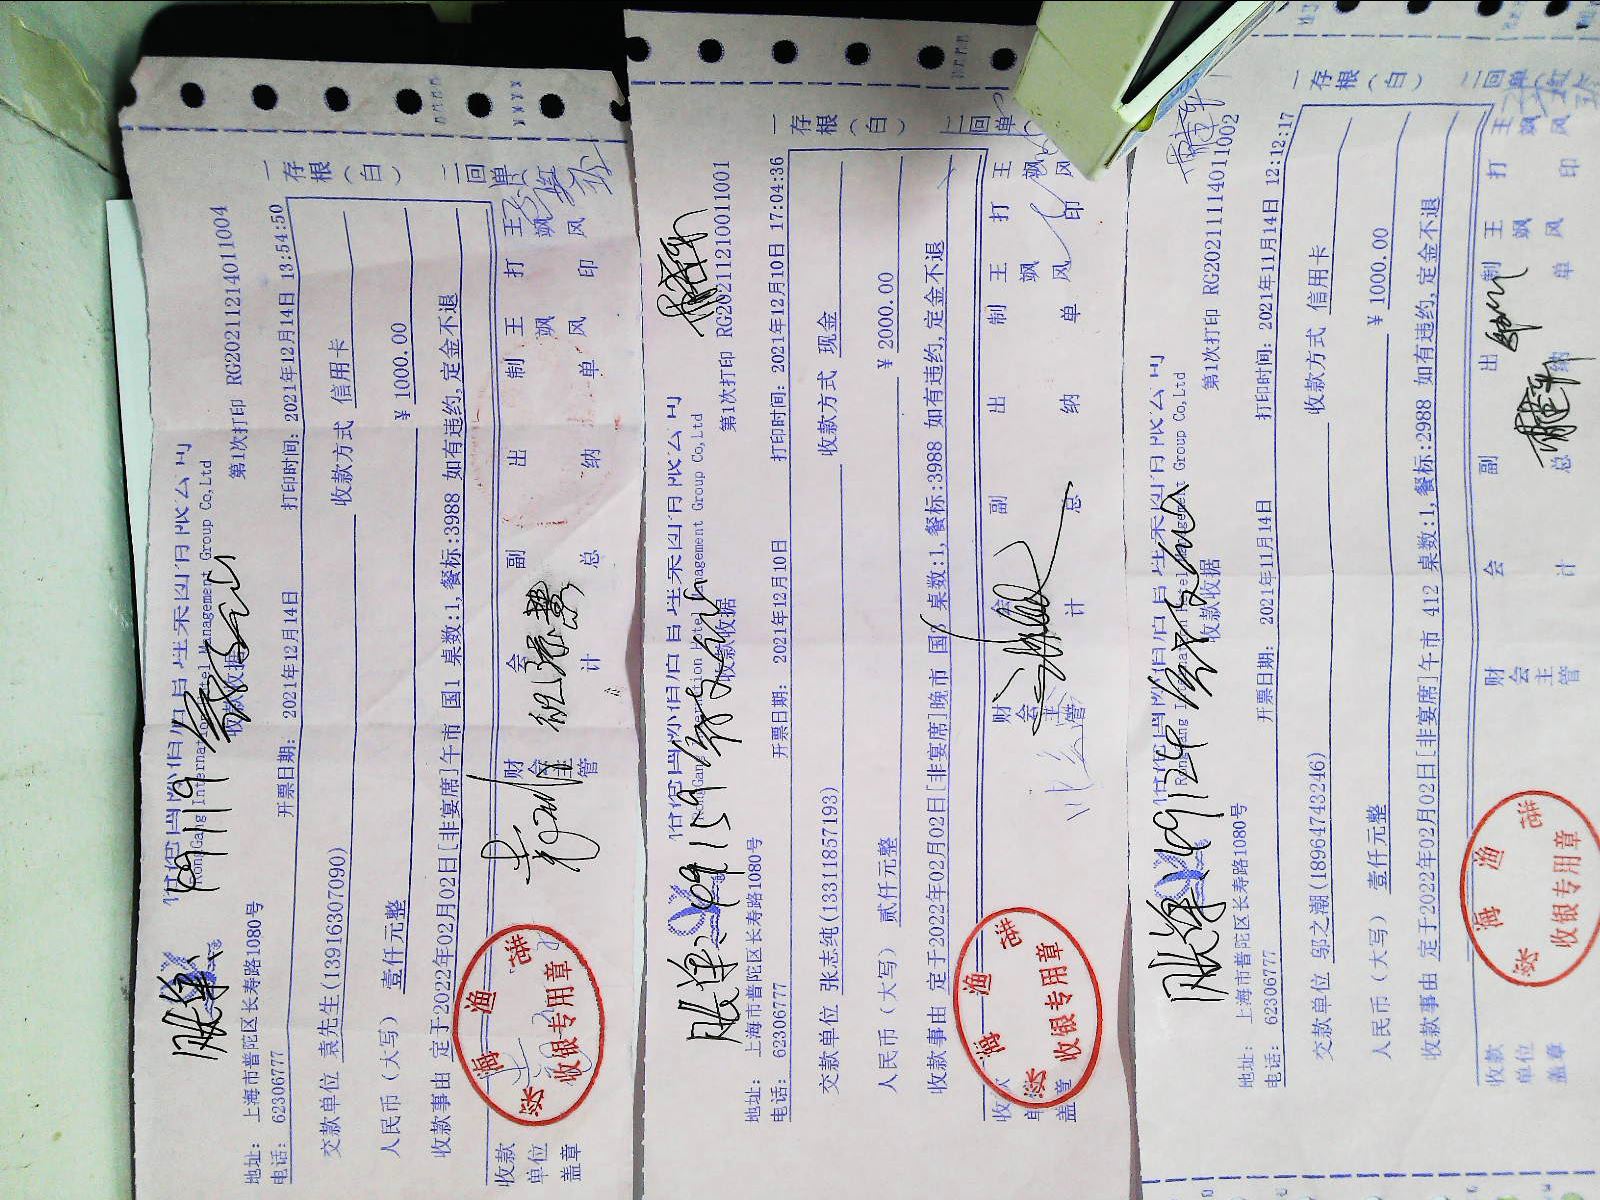 RongGang International Hotel Management Group Co,Ltd
收款收据
第1次打印 RG20211214011004
地址: 上海市普陀区长寿路1080号
电话: 62306777
开票日期: 2021年12月14日
打印时间: 2021年12月14日 13:54:50
交款单位 袁先生(13916307090)
收款方式 信用卡
人民币(大写) 壹仟元整
¥ 1000.00
收款事由 定于2022年02月02日[非宴席]午市 国1 桌数:1,餐标:3988 如有违约,定金不退
收款单位盖章
财会主管
会计
副总
出纳
制单 王飒风
打印 王飒风
一存根(白)
二回单
收银专用章
RongGang International Hotel Management Group Co,Ltd
收款收据
第1次打印 RG20211210011001
地址: 上海市普陀区长寿路1080号
电话: 62306777
开票日期: 2021年12月10日
打印时间: 2021年12月10日 17:04:36
交款单位 张志纯(13311857193)
收款方式 现金
人民币(大写) 贰仟元整
¥ 2000.00
收款事由 定于2022年02月02日[非宴席]晚市 国3 桌数:1,餐标:3988 如有违约,定金不退
收款单位盖章
财会主管
会计
副总
出纳
制单 王飒风
打印 王飒风
一存根(白)
二回单
收银专用章
RongGang International Hotel Management Group Co,Ltd
收款收据
第1次打印 RG20211114011002
地址: 上海市普陀区长寿路1080号
电话: 62306777
开票日期: 2021年11月14日
打印时间: 2021年11月14日 12:12:17
交款单位 邬之潮(18964743246)
收款方式 信用卡
人民币(大写) 壹仟元整
¥ 1000.00
收款事由 定于2022年02月02日[非宴席]午市 412 桌数:1,餐标:2988 如有违约,定金不退
收款单位盖章
财会主管
会计
副总
出纳
制单 王飒风
打印 王飒风
一存根(白)
二回单
收银专用章